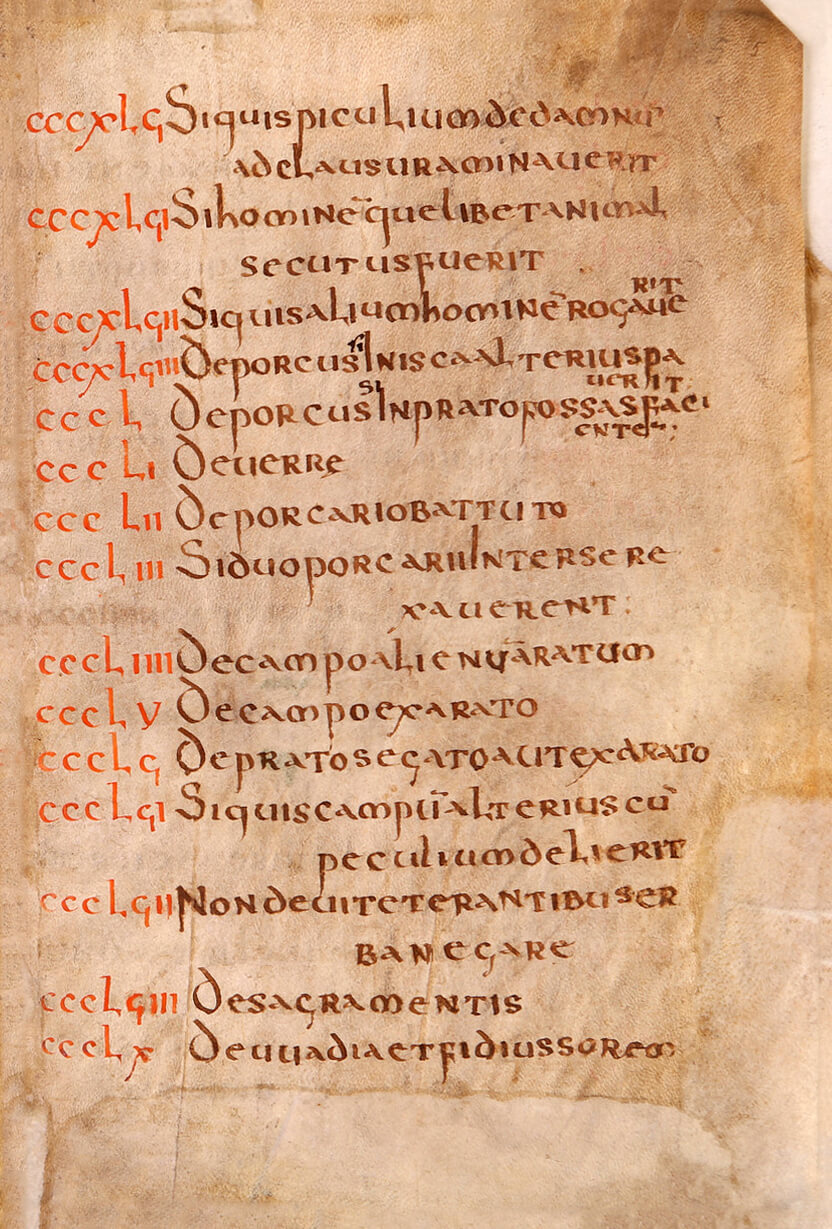 cccxLϛ Si quis piculium de damnu
ad clausura minauerit
cccxLϛI Si hominē que libet animal
secutus fuerit
cccxLϛII Si quis alium hominē rogaue
rit
cccxLϛIII De porcus si in isca alterius pa
uerit
cccL De porcus si in prato fossas faci
entem;
cccLI De uerre
cccLII De porcario battuto
cccLIII Si duo porcarii inter se re
xauerent:
cccLIIII De campo alienu aratum
cccLV De campo exarato
cccLϛ De prato segato aut exarato
cccLϛI Si quis campū alterius cū
peculium delierit
cccLϛII Non deui teterantibus er
ba negare
cccLϛIII De sagramentis
cccLx De uuadia et fidiussorem